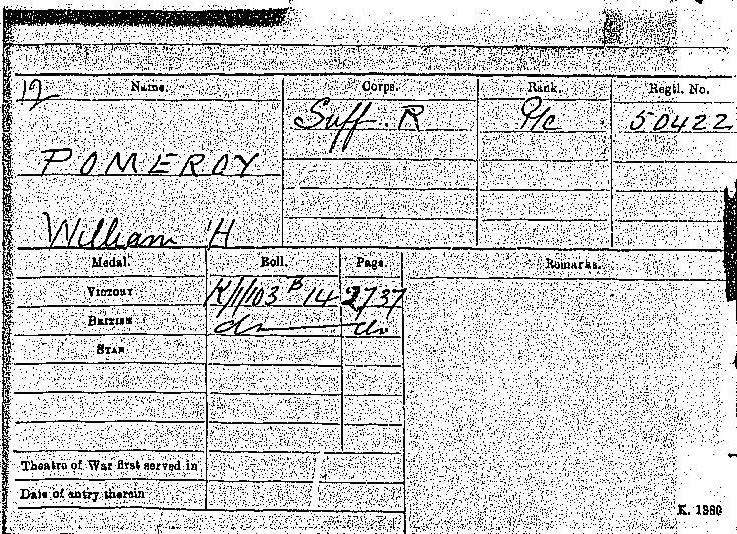 12
Name. Corps. Rank. Regtl. No.
Suff. R P/c 50422
POMEROY
William H
Medal. Roll. Page. Remarks.
VICTORY K/1/103 B 14 2737
BRITISH do do
STAR
Theatre of War first served in
Date of entry therein
K. 1380